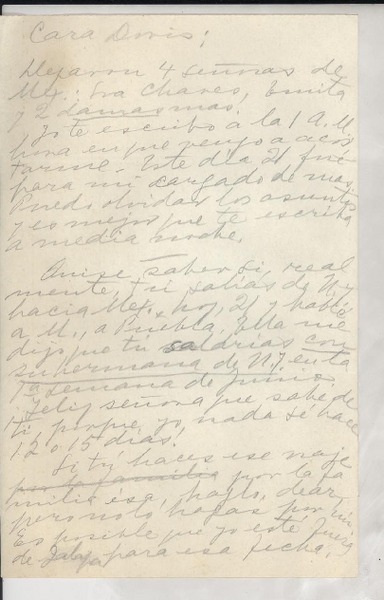 Cara Doris:
Llegaron 4 señoras de
Mex.: Sra Chaves, Emita
y 2 damas mas.
Yo te escribo a la 1 A.M.
hora en que vengo a acos
tarme. Este dia 21 fué
para mi cargado de mas.
Puedo olvidar los asuntos
y es mejor que te escriba
a media noche.
Quise saber si, real
mente, tú salias de N.Y.
hacia Mex., hoy, 21 y hablé
a M., a Puebla. Ella me
dijo que tú saldrias con
su hermana de N.Y. en la
1a semana de Junio.
¡Feliz señora que sabe de
ti, porque yo nada sé hace
12 o 15 dias!
Si tú haces ese viaje
por la familia por la fa
milia esa, hazlo, dear,
pero no lo hagas por mi.
Es posible que yo esté fuera
de Jalapa para esa fecha.